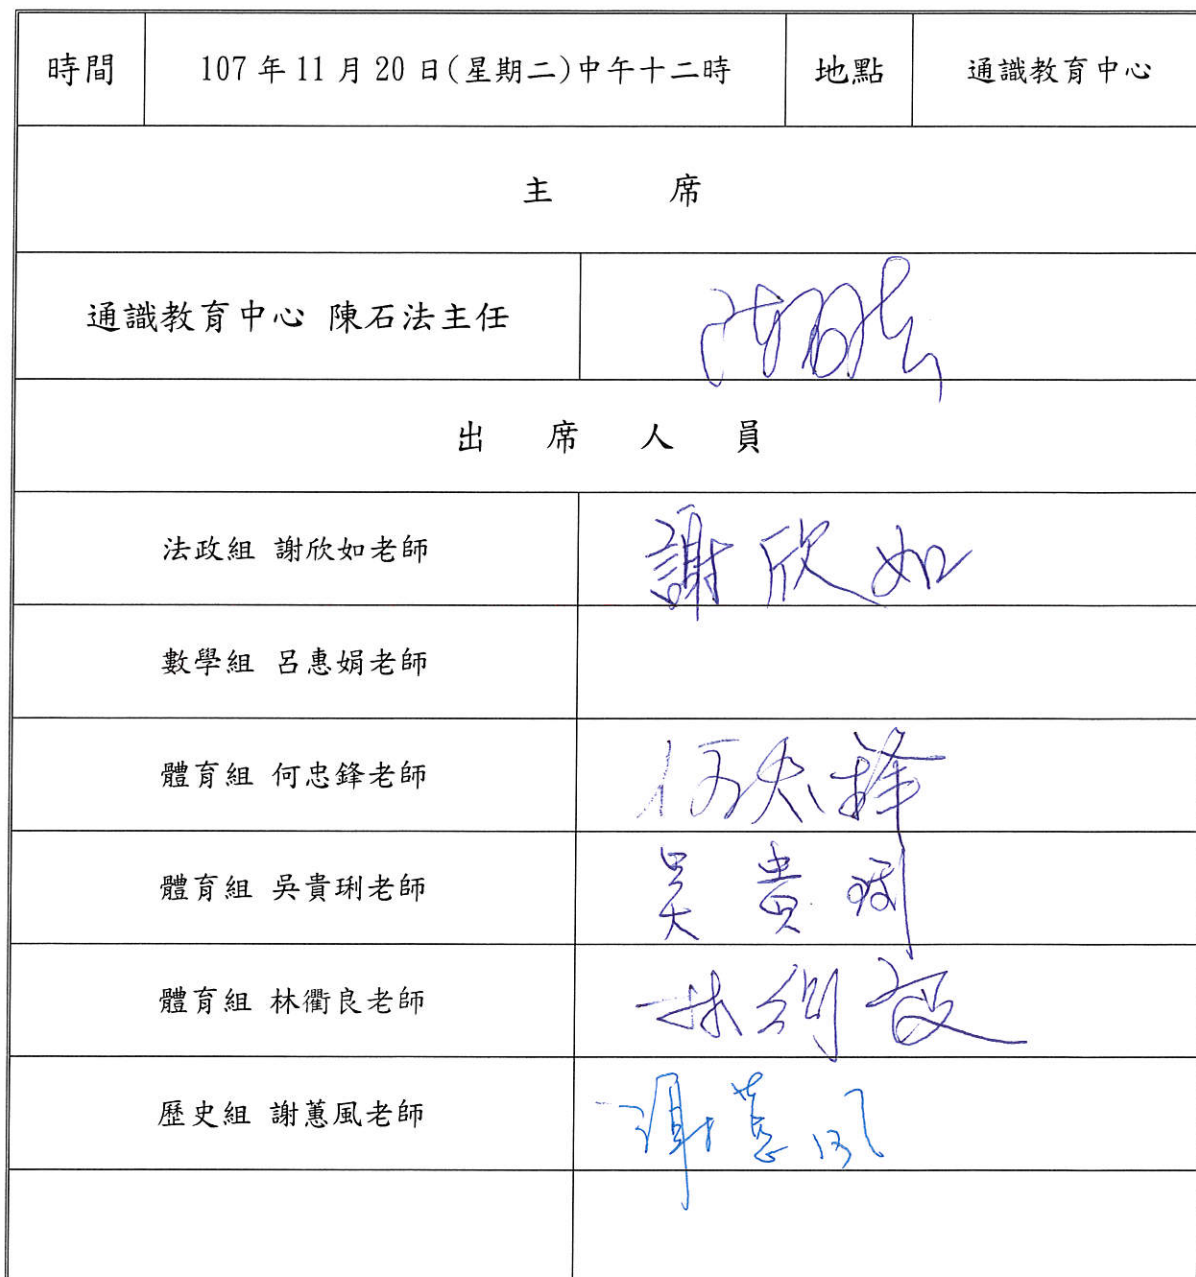 時間 107年11月20日(星期二)中午十二時 地點 通識教育中心
主 席
通識教育中心 陳石法主任 陳石法
出 席 人 員
法政組 謝欣如老師 謝欣如
數學組 呂惠娟老師
體育組 何忠鋒老師 何忠鋒
體育組 吳貴琍老師 吳貴琍
體育組 林衢良老師 林衢良
歷史組 謝蕙風老師 謝蕙風